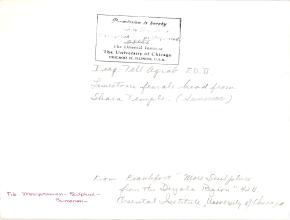 Permission is hereby
The Oriental Institute
The University of Chicago
CHICAGO 37, ILLINOIS, U.S.A.
Iraq Tell Agrab E.D. II
Limestone female head from
Shara Temple. (Sumerian)
From Frankfort "More Sculpture
from the Diyala Region"
Oriental Institute, University of Chicago
File Mesopotamian - Sculpture -
Sumerian